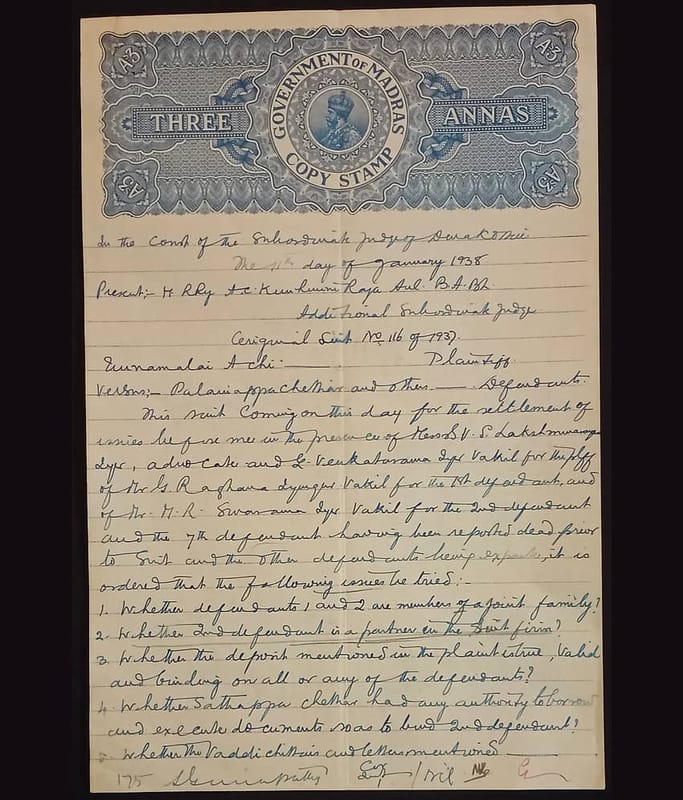 A3
A3
GOVERNMENT OF MADRAS
THREE
ANNAS
COPY STAMP
A3
A3
In the Court of the Subordinate Judge of Devakottai
The 11th day of January 1938
Present:- M RRy A.C. Kunhunni Raja Avl. B.A.BL
Additional Subordinate Judge
Original Suit No 116 of 1937.
Achi Plaintiff
Versus:- Palaniappa Chettiar and others. Defendants.
This suit Coming on this day for the settlement of
issues before me in the presence of Messrs V. S. Lakshminarayana
Iyer, advocate and G. Venkatarama Iyer Vakil for the plff
of Mr G. Raghava Iyengar Vakil for the 1st defendant, and
of Mr. M. R. Sivarama Iyer Vakil for the 2nd defendant
and the 7th defendant having been reported dead prior
to Suit and the other defendants being exparte, it is
ordered that the following issues be tried:-
1. Whether defendants 1 and 2 are members of a joint family?
2. Whether 2nd defendant is a partner in the Suit firm?
3. Whether the deposit mentioned in the plaint is true, Valid
and binding on all or any of the defendants?
4. Whether Sathappa Chettiar had any authority to borrow
and execute documents so as to bind 2nd defendant?
5. Whether the Vaddi chittais and letters mentioned
175